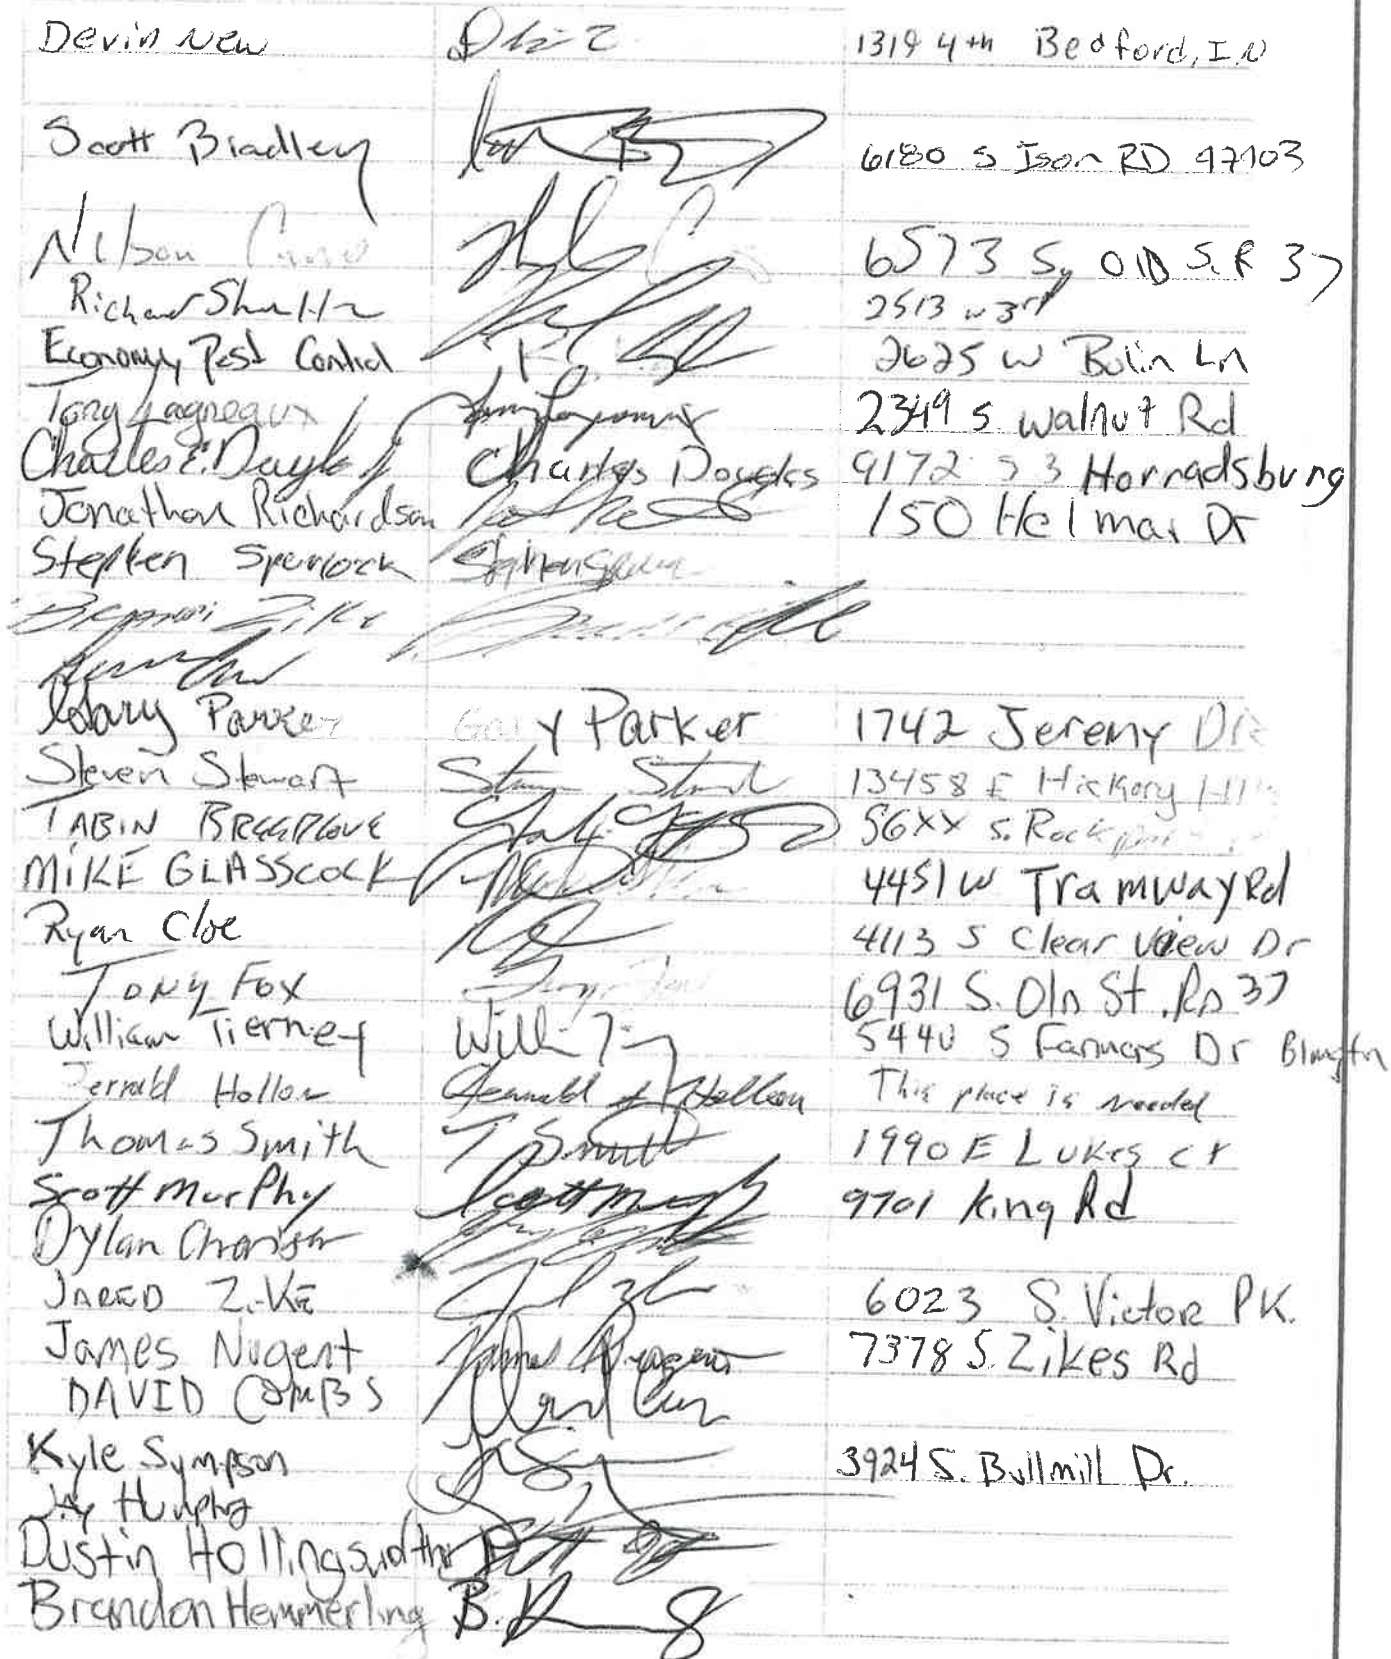 Devin New 1319 4th Bedford, IN
Scott Bradley 6180 S Ison RD 47403
6573 S. OlD S.R 37
Richard 2513 W 3rd
Economy Pest Control 2625 W Bolin Ln
Tony Lagneaux 2349 S. Walnut Rd
Charles E. Charles Douglas 9172 Harrodsburg
Jonathon Richardson 150 Helmar Dr
Stephen Spurlock
Zike
Gary Parker Gary Parker 1742 Jeremy
Steven Stewart 13458 E Hickory
TABIN BREEDLOVE 56XX S. Rock
MIKE GLASSCOCK 4451 W Tramway Rd
Ryan Cloe 4113 S Clear View Dr
TONY FOX 6931 S. Old St. Rd 37
William Tierney 5440 S Farmers Dr Blmgtn
Jerrald Hollon Jerrald Hollon This place is needed
Thomas Smith T Smith 1990 E Lukes ct
Scott Murphy Scott 9701 King Rd
Dylan
JARED ZIKE 6023 S. Victor PK.
James Nugent James Nugent 7378 S. Zikes Rd
DAVID COMBS
Kyle Sympson 3924 S. Bullmill Dr.
Jay
Dustin Hollingsworth
Brandon Hemmerling B.